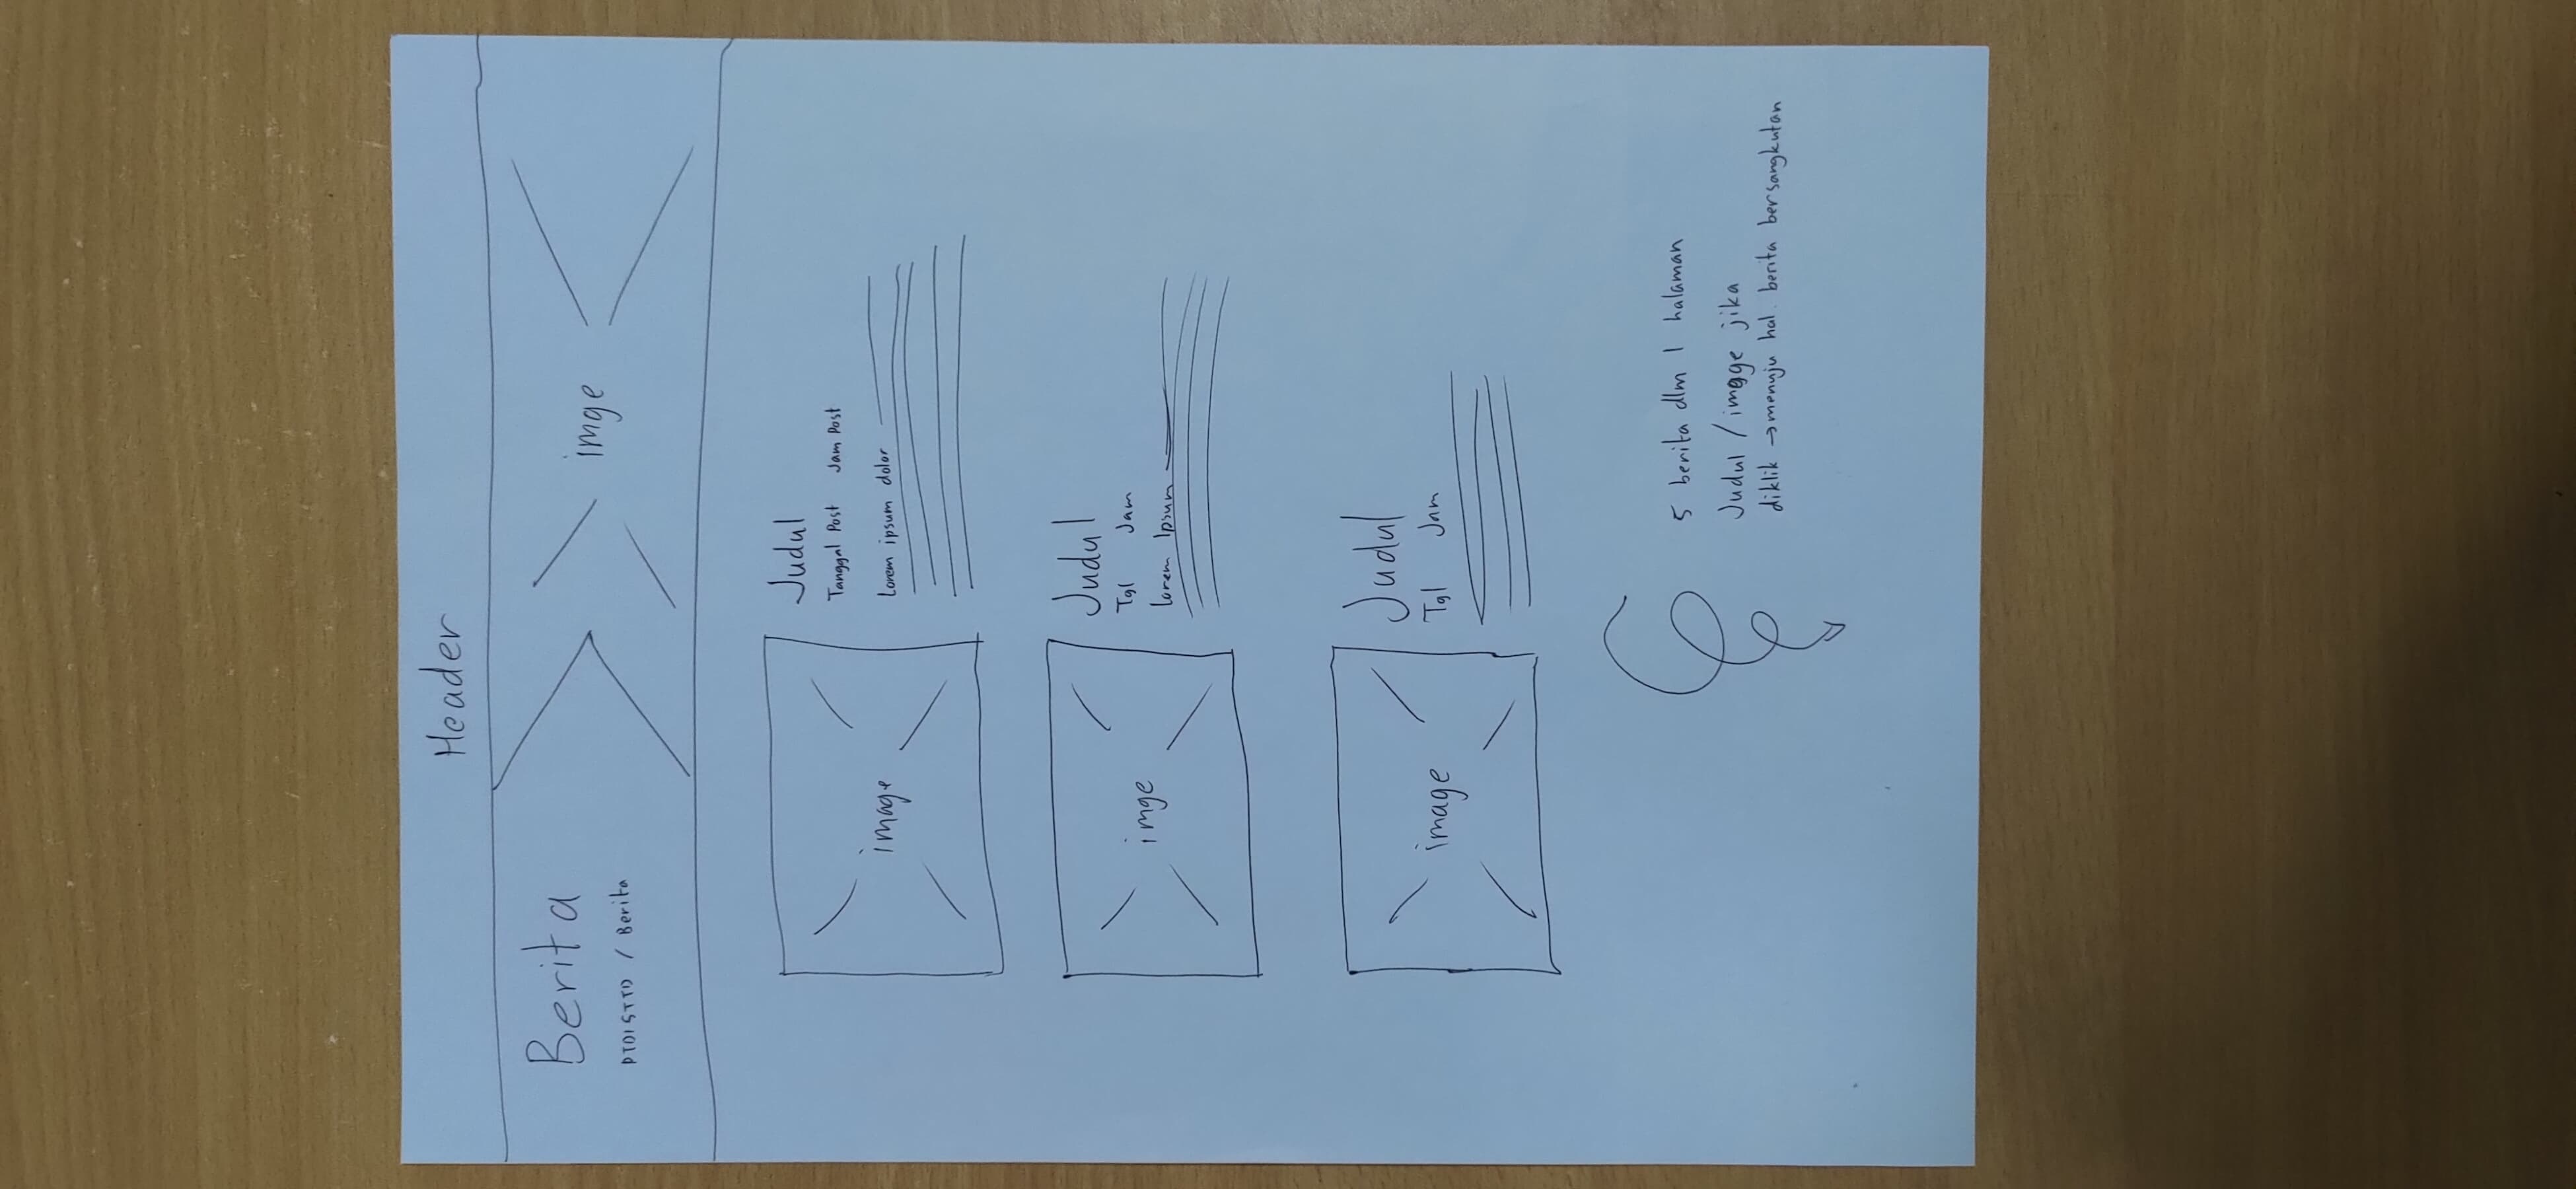 Header
Berita
PTDI STTD / Berita
imge
image
Judul
Tanggal Post Jam Post
Lorem ipsum dolor
imge
Judul
Tgl Jam
Lorem Ipsum
image
Judul
Tgl Jam
5 berita dlm 1 halaman
Judul / imgge jika
diklik → menuju hal. berita bersangkutan